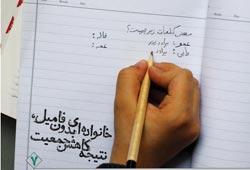 معنی کلمات زیر چیست؟
خاله:
عمو: برادر پدر
عمه:
دایی: برادر
خانواده‌ای بدون فامیل،
نتیجه کاهش جمعیت
۷